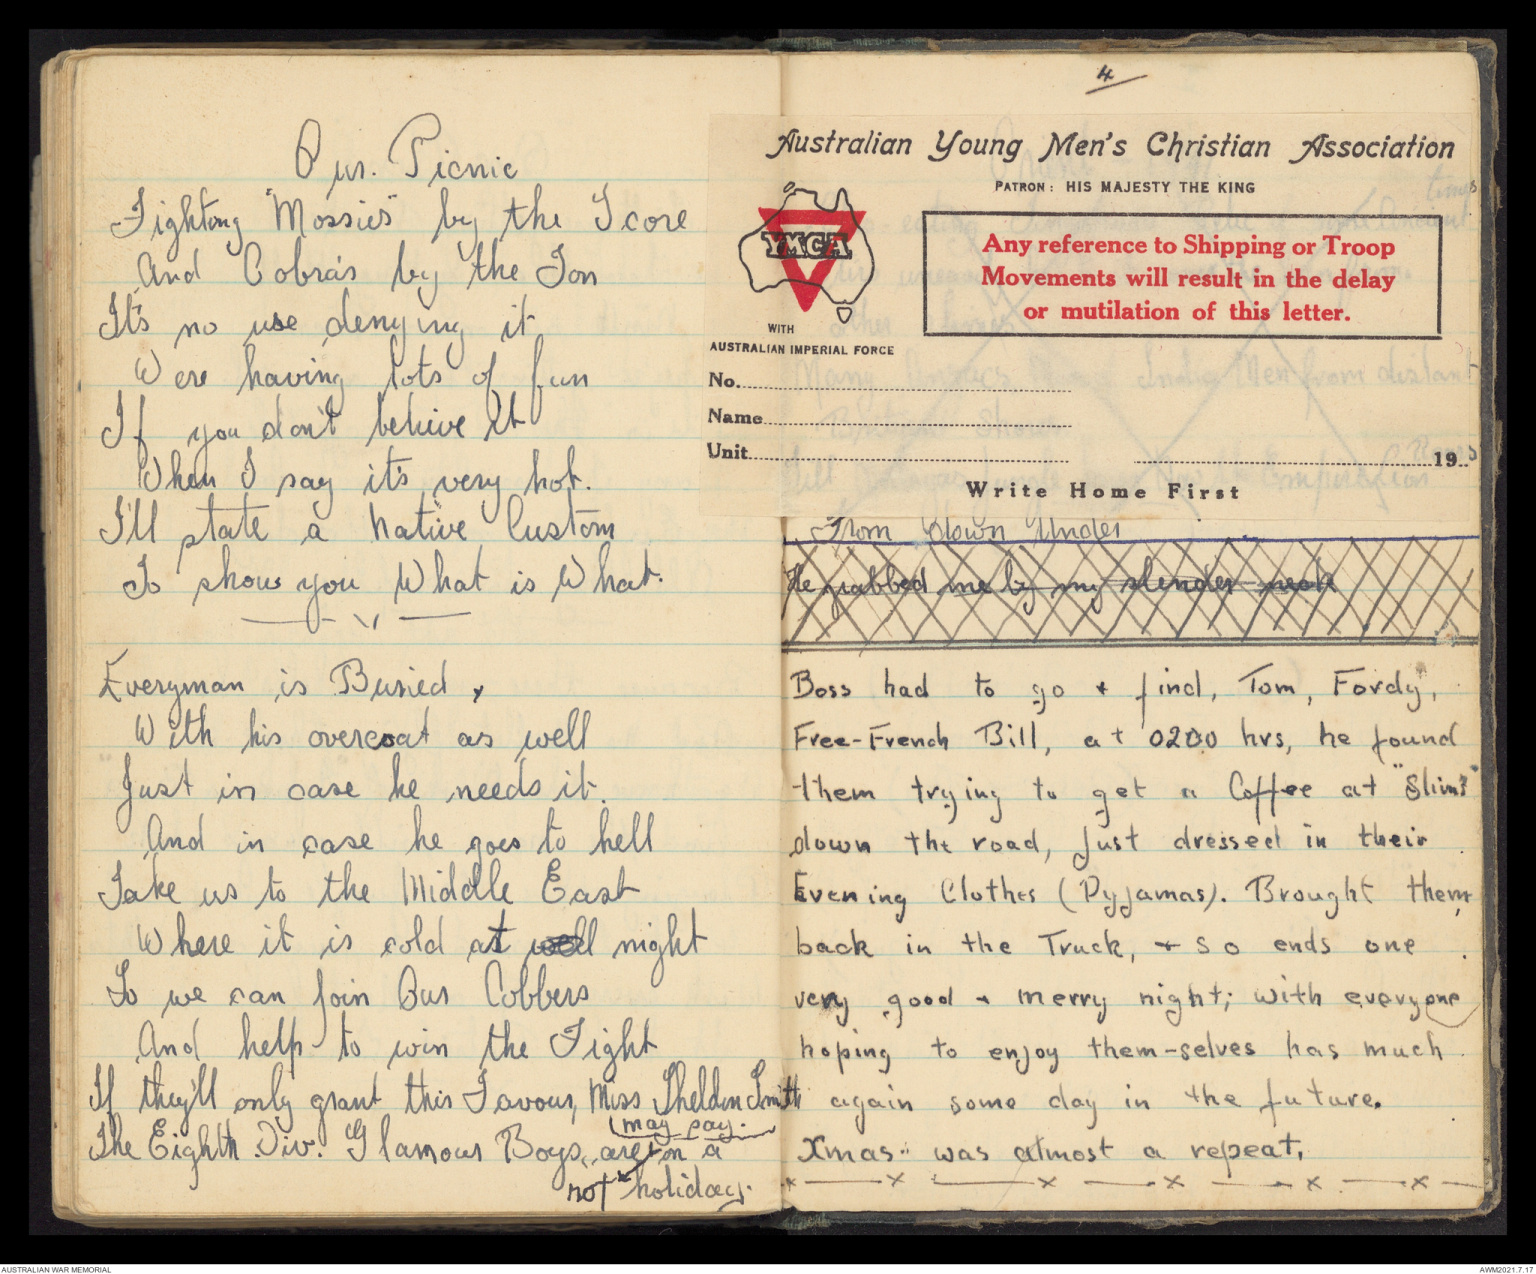 Our. Picnic
Fighting "Mossies" by the Score
And Cobra's by the Ton
It's no use denying it
Were having lots of fun
If you don't belive it
When I say it's very hot.
I'll state a Native Custom
To show you What is What.
Everyman is Buried,
With his overcoat as well
Just in case he needs it.
And in case he goes to hell
Take us to the Middle East
Where it is cold at well night
So we can join Our Cobbers
And help to win the Fight
If they'll only grant this Favour, Miss Sheldon Smith
(may pay.
The Eighth Div. Glamour Boys, are on a
not holiday.
4
Australian Young Men's Christian Association
PATRON: HIS MAJESTY THE KING
YMCA
WITH
AUSTRALIAN IMPERIAL FORCE
Any reference to Shipping or Troop
Movements will result in the delay
or mutilation of this letter.
No.
Name
Unit
19
Write Home First
From Down Under
He grabbed me by my slender neck
Boss had to go + find, Tom, Fordy,
Free-French Bill, at 0200 hrs, he found
them trying to get a Coffee at "Slims"
down the road, Just dressed in their
Evening Clothes (Pyjamas). Brought them,
back in the Truck, + so ends one
very good + merry night; with everyone
hoping to enjoy them-selves has much
again some day in the future.
Xmas.. was almost a repeat.
AUSTRALIAN WAR MEMORIAL
AWM2021.7.17